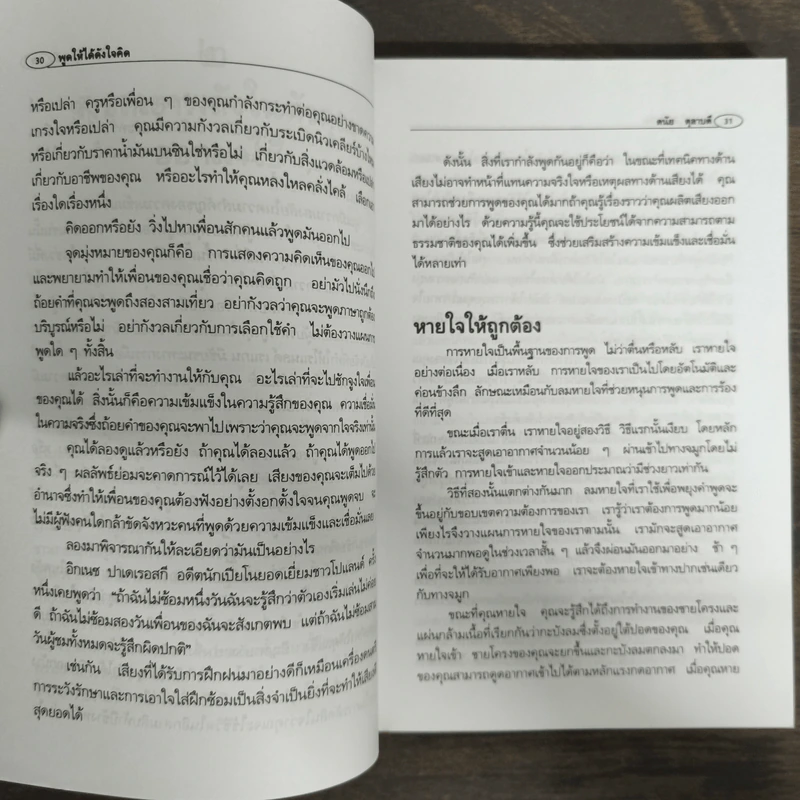 30 พูดให้ได้ดังใจคิด
หรือเปล่า ครูหรือเพื่อน ๆ ของคุณกำลังกระทำต่อคุณอย่างขาดความ
เกรงใจหรือเปล่า คุณมีความกังวลเกี่ยวกับระเบิดนิวเคลียร์บ้างไหม
หรือเกี่ยวกับราคาน้ำมันเบนซินใช่หรือไม่ เกี่ยวกับสิ่งแวดล้อมหรือ
เกี่ยวกับอาชีพของคุณ หรืออะไรทำให้คุณหลงใหลคลั่งไคล้ เลือก
เรื่องใดเรื่องหนึ่ง
คิดออกหรือยัง วิ่งไปหาเพื่อนสักคนแล้วพูดมันออกไป
จุดมุ่งหมายของคุณก็คือ การแสดงความคิดเห็นของคุณออกไป
และพยายามทำให้เพื่อนของคุณเชื่อว่าคุณคิดถูก อย่ามัวไปนั่งนึกถึง
ถ้อยคำที่คุณจะพูดถึงสองสามเที่ยว อย่ากังวลว่าคุณจะพูดภาษาถูกต้อง
บริบูรณ์หรือไม่ อย่ากังวลเกี่ยวกับการเลือกใช้คำ ไม่ต้องวางแผนการ
พูดใด ๆ ทั้งสิ้น
แล้วอะไรเล่าที่จะทำงานให้กับคุณ อะไรเล่าที่จะไปชักจูงใจเพื่อน
ของคุณได้ สิ่งนั้นก็คือความเข้มแข็งในความรู้สึกของคุณ ความเชื่อมั่น
ในความจริงซึ่งถ้อยคำของคุณจะพาไปเพราะว่าคุณจะพูดจากใจจริงเท่านั้น
คุณได้ลองดูแล้วหรือยัง ถ้าคุณได้ลองแล้ว ถ้าคุณได้พูดออกไป
จริง ๆ ผลลัพธ์ย่อมจะคาดการณ์ไว้ได้เลย เสียงของคุณจะเต็มไปด้วย
อำนาจซึ่งทำให้เพื่อนของคุณต้องฟังอย่างตั้งอกตั้งใจจนคุณพูดจบ จะ
ไม่มีผู้ฟังคนใดกล้าขัดจังหวะคนที่พูดด้วยความเข้มแข็งและเชื่อมั่นเลย
ลองมาพิจารณากันให้ละเอียดว่ามันเป็นอย่างไร
อิกเนซ ปาเดเรสกี อดีตนักเปียโนยอดเยี่ยมชาวโปแลนด์ ครั้ง
หนึ่งเคยพูดว่า “ถ้าฉันไม่ซ้อมหนึ่งวันฉันจะรู้สึกว่าตัวเองเริ่มเล่นไม่ค่อย
ดี ถ้าฉันไม่ซ้อมสองวันเพื่อนของฉันจะสังเกตพบ แต่ถ้าฉันไม่ซ้อมสาม
วันผู้ชมทั้งหมดจะรู้สึกผิดปกติ”
เช่นกัน เสียงที่ได้รับการฝึกฝนมาอย่างดีก็เหมือนเครื่องดนตรี
การระวังรักษาและการเอาใจใส่ฝึกซ้อมเป็นสิ่งจำเป็นยิ่งที่จะทำให้เสียง
สุดยอดได้
ดนัย ตุลาบดี 31
ดังนั้น สิ่งที่เรากำลังพูดกันอยู่ก็คือว่า ในขณะที่เทคนิคทางด้าน
เสียงไม่อาจทำหน้าที่แทนความจริงใจหรือเหตุผลทางด้านเสียงได้ คุณ
สามารถช่วยการพูดของคุณได้มากถ้าคุณรู้เรื่องราวว่าคุณผลิตเสียงออก
มาได้อย่างไร ด้วยความรู้นี้คุณจะใช้ประโยชน์ได้จากความสามารถตาม
ธรรมชาติของคุณได้เพิ่มขึ้น ซึ่งช่วยเสริมสร้างความเข้มแข็งและเชื่อมั่น
ได้หลายเท่า
หายใจให้ถูกต้อง
การหายใจเป็นพื้นฐานของการพูด ไม่ว่าตื่นหรือหลับ เราหายใจ
อย่างต่อเนื่อง เมื่อเราหลับ การหายใจของเราเป็นไปโดยอัตโนมัติและ
ค่อนข้างลึก ลักษณะเหมือนกับลมหายใจที่ช่วยหนุนการพูดและการร้อง
ที่ดีที่สุด
ขณะเมื่อเราตื่น เราหายใจอยู่สองวิธี วิธีแรกนั้นเงียบ โดยหลัก
การแล้วเราจะสูดเอาอากาศจำนวนน้อย ๆ ผ่านเข้าไปทางจมูกโดยไม่
รู้สึกตัว การหายใจเข้าและหายใจออกประมาณว่ามีช่วงยาวเท่ากัน
วิธีที่สองนั้นแตกต่างกันมาก ลมหายใจที่เราใช้เพื่อพยุงคำพูดจะ
ขึ้นอยู่กับขอบเขตความต้องการของเรา เรารู้ว่าเราต้องการพูดมากน้อย
เพียงไรจึงวางแผนการหายใจของเราตามนั้น เรามักจะสูดเอาอากาศ
จำนวนมากพอดูในช่วงเวลาสั้น ๆ แล้วจึงผ่อนมันออกมาอย่าง ช้า ๆ
เพื่อที่จะให้ได้รับอากาศเพียงพอ เราจะต้องหายใจเข้าทางปากเช่นเดียว
กับทางจมูก
ขณะที่คุณหายใจ คุณจะรู้สึกได้ถึงการทำงานของชายโครงและ
แผ่นกล้ามเนื้อที่เรียกกันว่ากะบังลมซึ่งตั้งอยู่ใต้ปอดของคุณ เมื่อคุณ
หายใจเข้า ชายโครงของคุณจะยกขึ้นและกะบังลมตกลงมา ทำให้ปอด
ของคุณสามารถดูดอากาศเข้าไปได้ตามหลักแรงกดอากาศ เมื่อคุณหาย